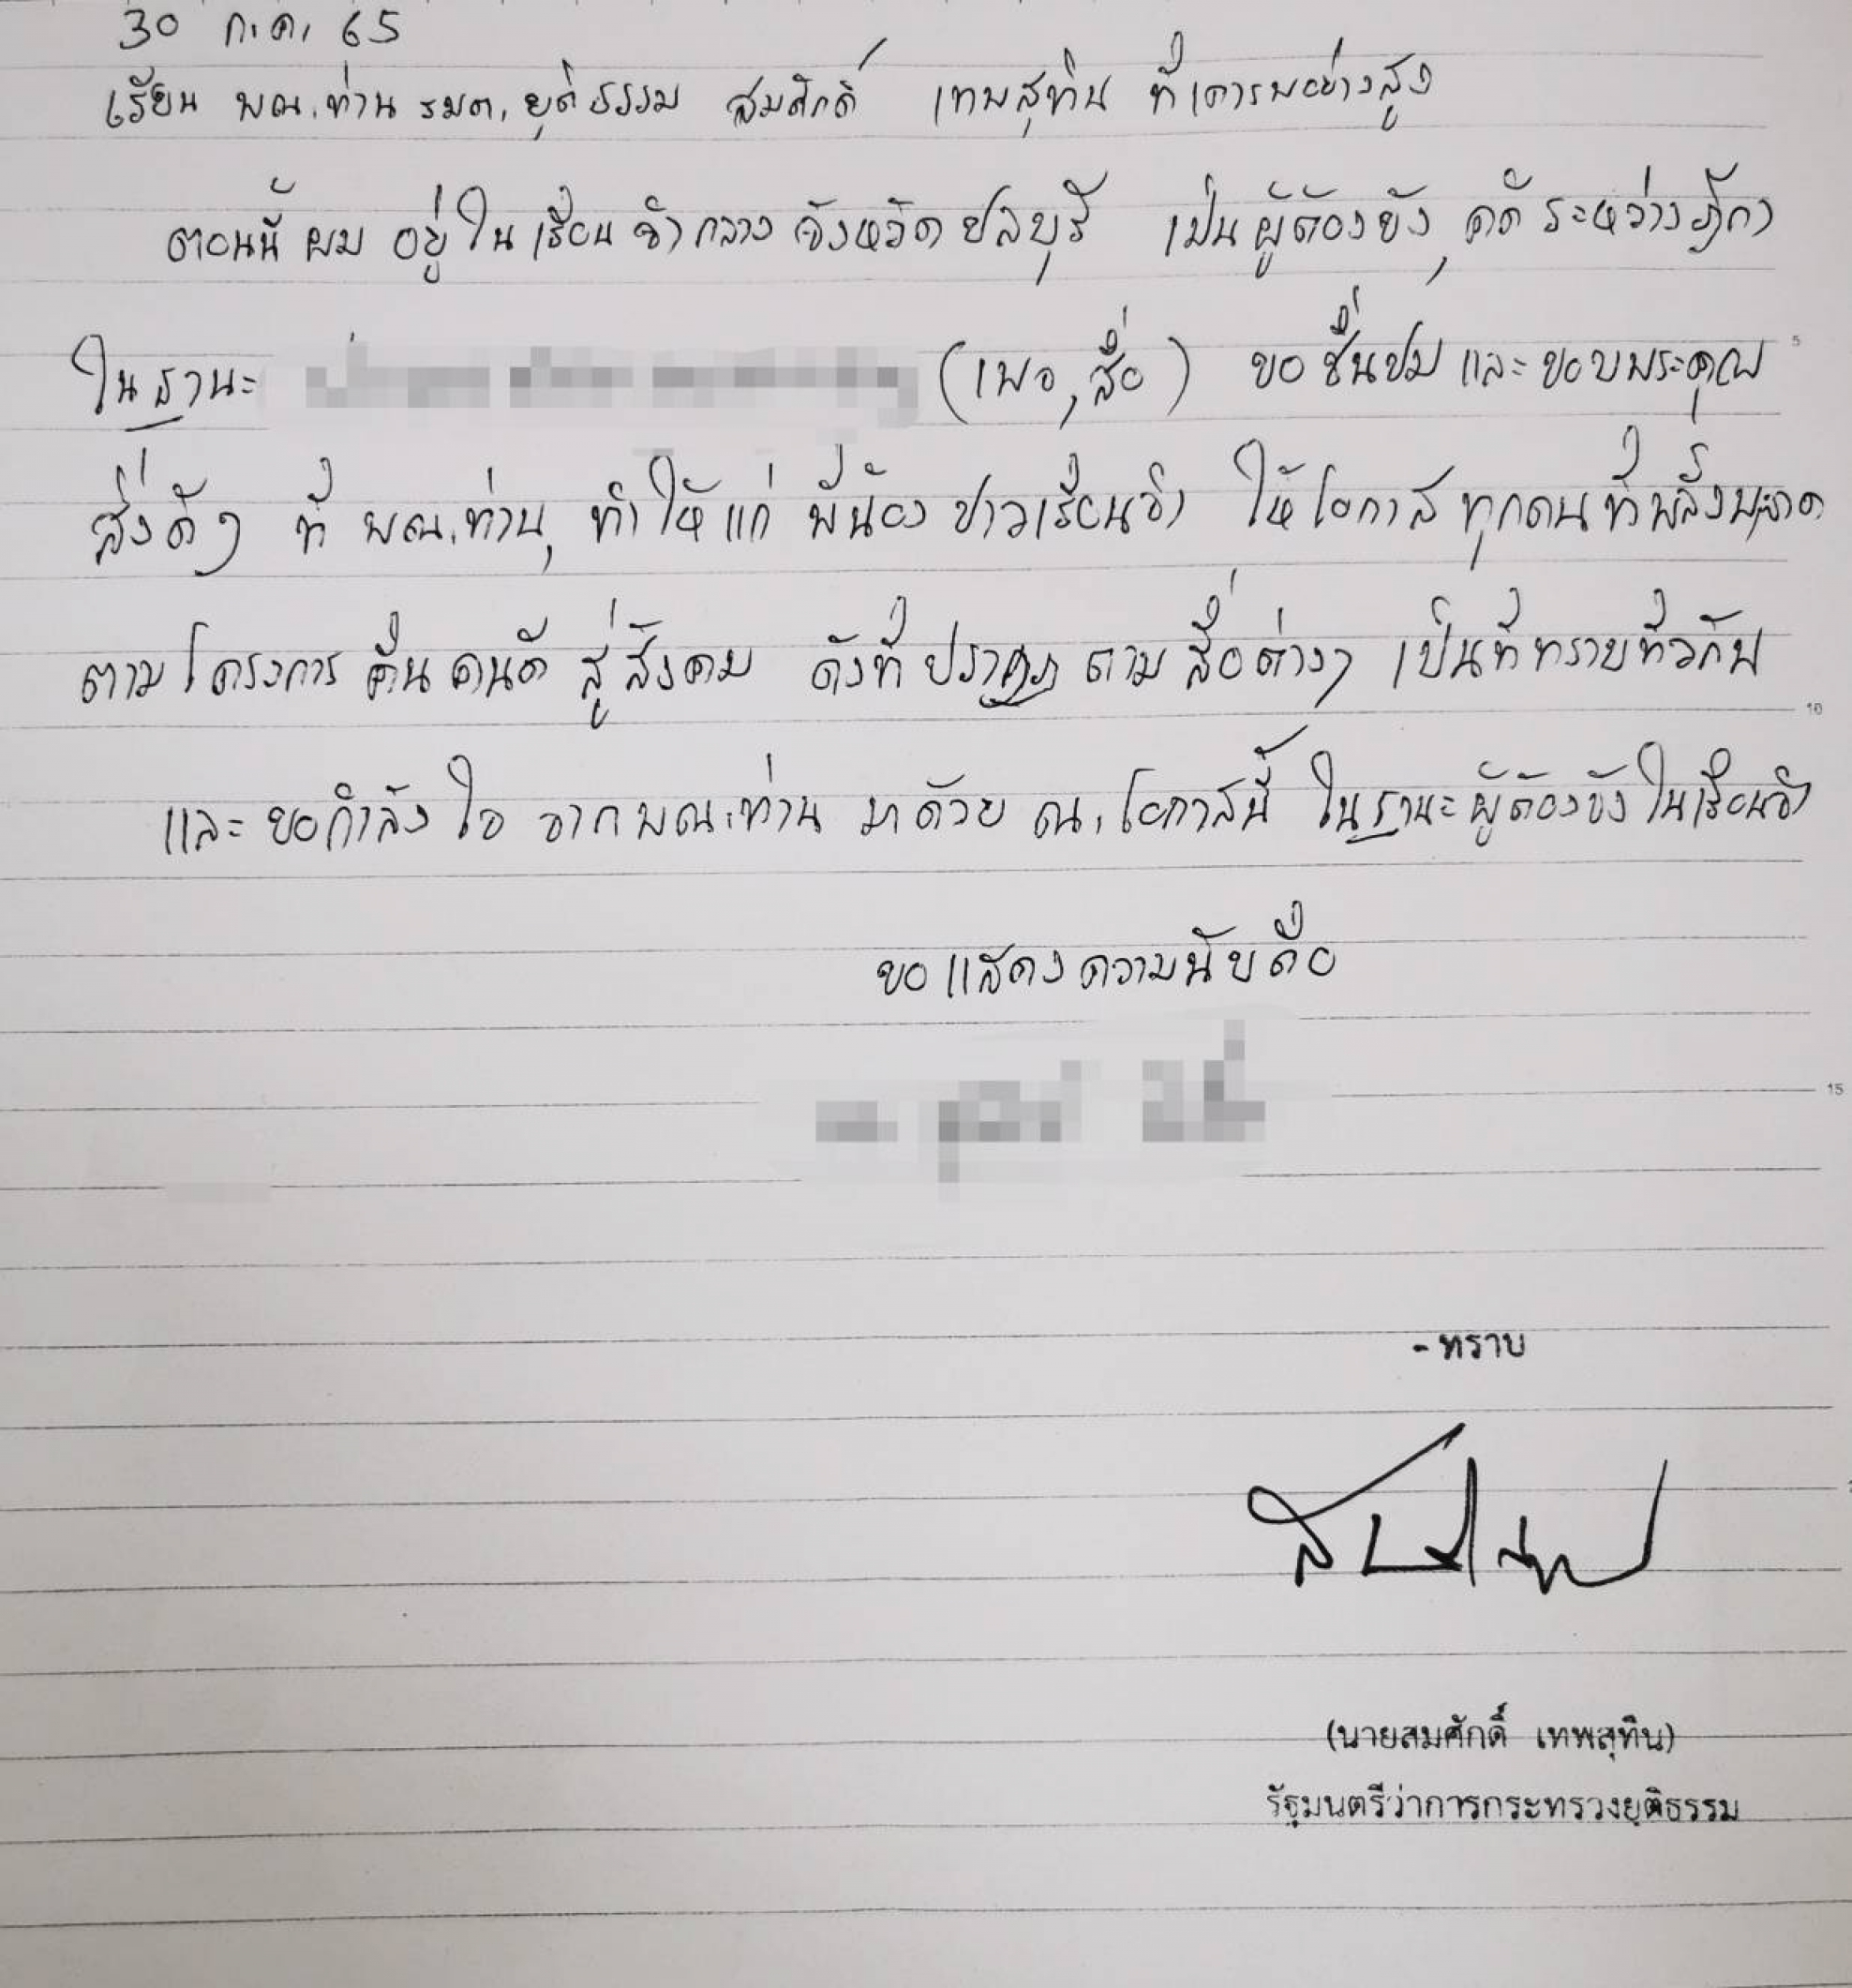 30 ก.ค. 65
เรียน พณ.ท่าน รมต.ยุติธรรม สมศักดิ์ เทพสุทิน ที่เคารพอย่างสูง
ตอนนี้ ผม อยู่ ใน เรือน จำ กลาง จังหวัด ชลบุรี เป็น ผู้ต้องขัง, คดี ระหว่าง ฎีกา
ใน ฐานะ (เพจ, สื่อ) ขอ ชื่นชม และ ขอบพระคุณ
5
สิ่งดีๆ ที่ พณ.ท่าน, ทำ ให้ แก่ พี่น้อง ชาวเรือนจำ ให้ โอกาส ทุกคน ที่พลั้งพลาด
ตาม โครงการ คืน คนดี สู่ สังคม ดังที่ ปรากฎ ตาม สื่อต่างๆ เป็นที่ทราบทั่วกัน
10
และ ขอกำลัง ใจ จาก พณ.ท่าน มาด้วย ณ.โอกาสนี้ ในฐานะ ผู้ต้องขัง ในเรือนจำ
ขอ แสดง ความนับถือ
15
- ทราบ
(นายสมศักดิ์ เทพสุทิน)
รัฐมนตรีว่าการกระทรวงยุติธรรม